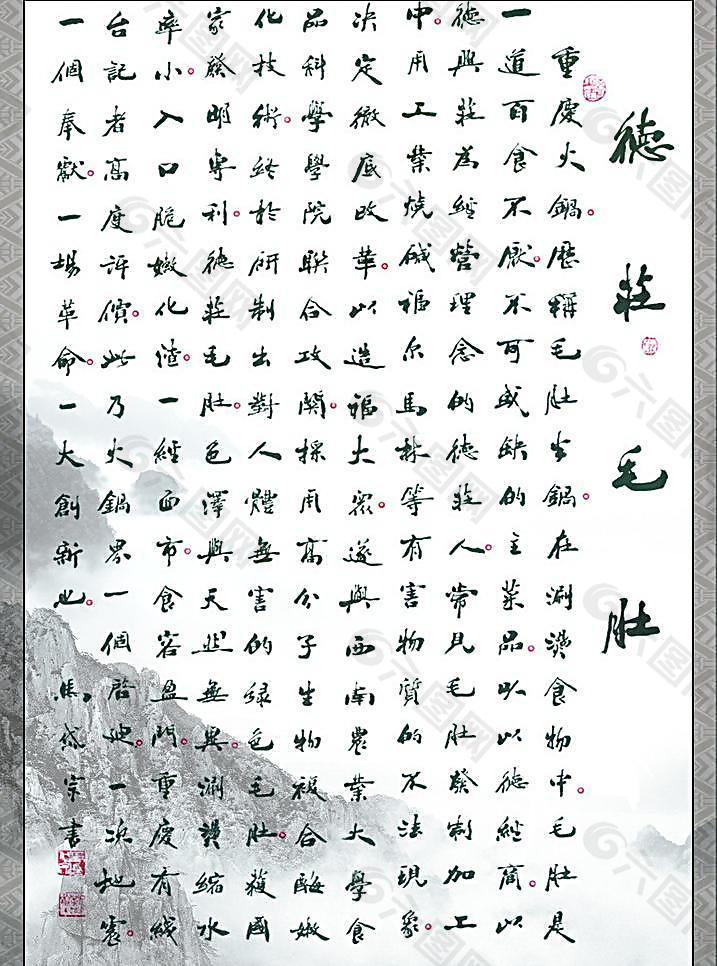 德莊毛肚
重慶火鍋。歷稱毛肚坐鍋。在涮燙食物中。毛肚是
一道百食不厭。不可或缺的主菜品。以以德經商。以
德興莊為經營理念的德莊人。常見毛肚發制加工
中。用工業燒碱福尔馬林等有害物質的不法現象。
決定徹底改革。以造福大眾。遂與西南農業大學食
品科學學院联合攻關。採用高分子生物複合酶嫩
化技術。終於研制出對人體無害的绿色毛肚。獲國
家發明專利。德莊毛肚。色澤與天然無異。涮燙縮水
率小。入口脆嫩化渣。一經面市。食客盈門。重慶有綫
台記者高度評價。此乃火鍋界一個啟迪。一次地震。
一個奉獻。一場革命。一大創新也。馬岱宗書
六图网